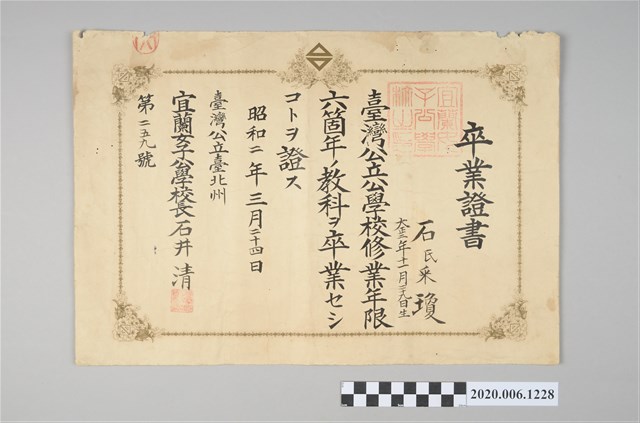 卒業證書
石氏采瓊
年十一月二十九日生
臺灣公立公學校修業年限
六箇年ノ教科ヲ卒業セシ
コトヲ證ス
昭和二年三月二十四日
臺灣公立臺北州
宜蘭女子公學校長石井清
第二五九號
2020.006.1228